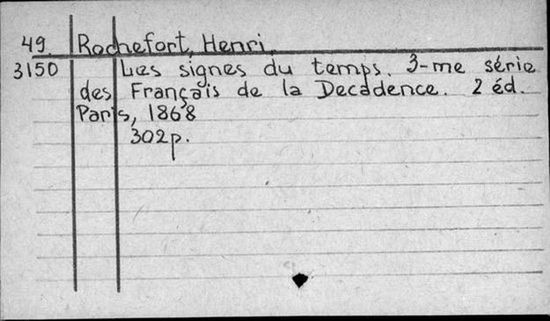 49. Rochefort, Henri.
3150 Les signes du temps. 3-me série
des Français de la Decadence. 2 éd.
Paris, 1868
302p.